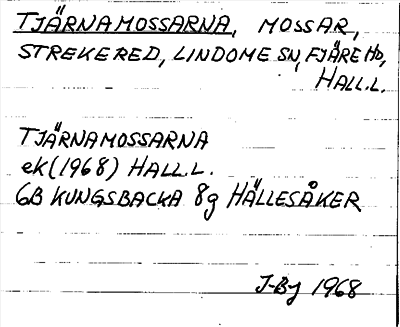 TJÄRNAMOSSARNA, MOSSAR,
STREKERED, LINDOME SN, FJÄRE HD,
HALL.L.
TJÄRNAMOSSARNA
eK(1968) HALL.L.
6B KUNGSBACKA 8g HÄLLESÅKER
J-By 1968